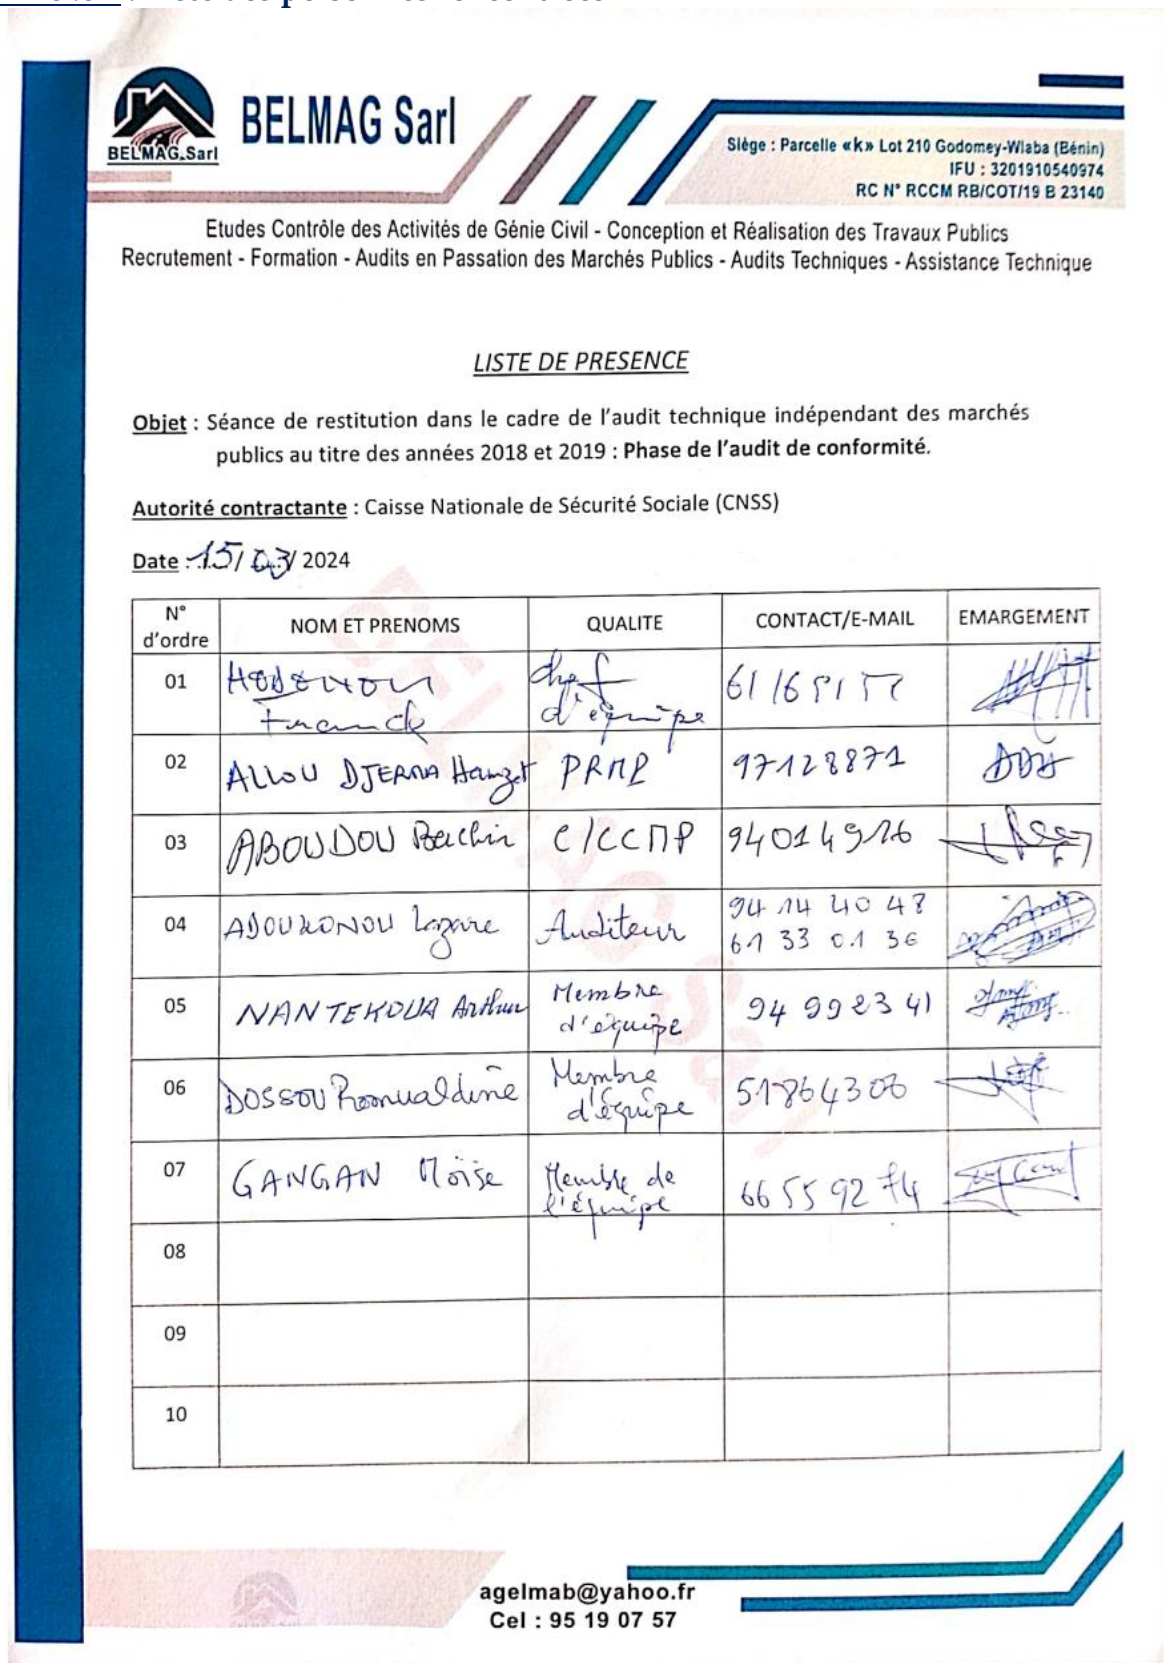 BELMAG Sarl
BELMAG.Sarl
Siège : Parcelle «k» Lot 210 Godomey-Wlaba (Bénin)
IFU : 3201910540974
RC N° RCCM RB/COT/19 B 23140
Etudes Contrôle des Activités de Génie Civil - Conception et Réalisation des Travaux Publics
Recrutement - Formation - Audits en Passation des Marchés Publics - Audits Techniques - Assistance Technique
LISTE DE PRESENCE
Objet : Séance de restitution dans le cadre de l'audit technique indépendant des marchés
publics au titre des années 2018 et 2019 : Phase de l'audit de conformité.
Autorité contractante : Caisse Nationale de Sécurité Sociale (CNSS)
Date : 15/03/ 2024
N° d'ordre NOM ET PRENOMS QUALITE CONTACT/E-MAIL EMARGEMENT
01 Franck chef d'équipe
02 ALLOU DJERMA Hamzat PRMP 97128871
03 ABOUDOU Bachir C/CCMP
04 ADOUKONOU Lazare Auditeur 94 14 40 48
61 33 01 36
05 NANTEKOUA Arthur Membre d'équipe 94 99 23 41
06 DOSSOU Romualdine Membre d'équipe 51864306
07 GANGAN Moïse Membre de l'équipe 66 55 92 74
08
09
10
agelmab@yahoo.fr
Cel : 95 19 07 57